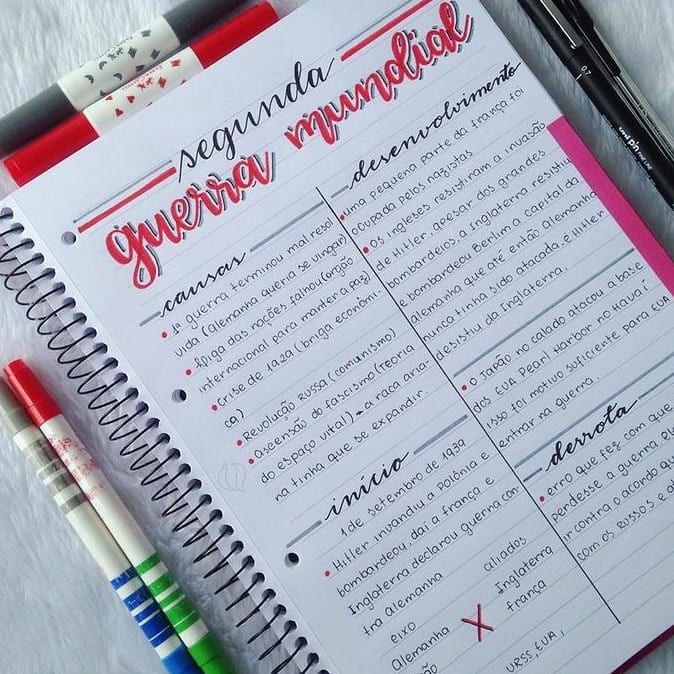 segunda
guerra mundial
causas
1ª guerra terminou mal resol
vida (alemanha queria se vingar)
liga das nações falhou (orgão
internacional para manter a paz)
Crise de 1929 (briga econômi
ca)
Revolução Russa (comunismo)
Ascensão do fascismo (Teoria
do espaço vital) → a raça aria-
na tinha que se expandir.
início
1 de setembro de 1939
Hitler invandiu a Polônia e
bombardeou, daí a frança e
Inglaterra declarou guerra con
tra Alemanha
eixo
aliados
Alemanha
X
Inglaterra
frança
URSS, EUA,
desenvolvimento
uma pequena parte da frança foi
ocupada pelos nazistas
Os ingleses resistiram a invasão
de Hitler, apesar dos grandes
bombardeios, a Inglaterra resistiu
e bombardeou Berlim a capital da
alemanha que até então Alemanha
nunca tinha sido atacada, e Hitler
desistiu da Inglaterra.
O Japão no calado atacou a base
dos EUA Pearl Harbor no Havaí
isso foi motivo suficiente para EUA
entrar na guerra.
derrota
erro que fez com que
perdesse a guerra
ir contra o acordo
com os Russos, e
0.7
uni pin